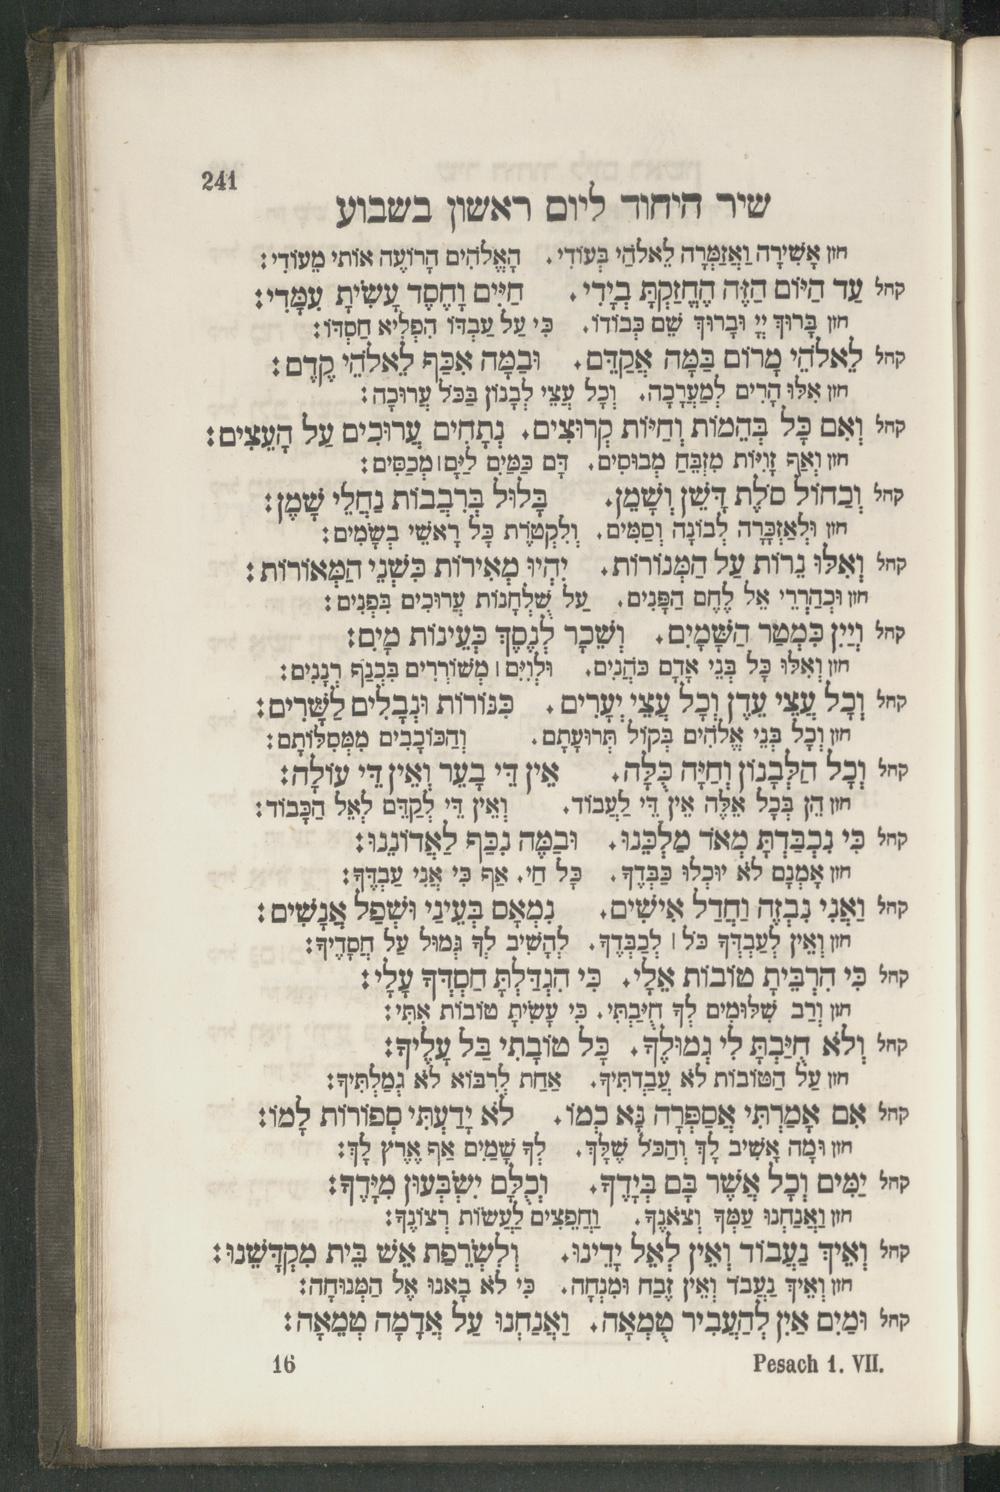 241
שיר היחוד ליום ראשון בשבוע
חזן אָשִׁירָה וַאֲזַמְּרָה לֵאלֹהַי בְּעוֹדִי. הָאֱלֹהִים הָרוֹעֶה אוֹתִי מֵעוֹדִי:
קהל עַד הַיּוֹם הַזֶּה הֶחֱזַקְתָּ בְיָדִי. חַיִּים וָחֶסֶד עָשִׂיתָ עִמָּדִי:
חזן בָּרוּךְ יְיָ וּבָרוּךְ שֵׁם כְּבוֹדוֹ. כִּי עַל עַבְדּוֹ הִפְלִיא חַסְדּוֹ:
קהל לֵאלֹהֵי מָרוֹם בַּמָּה אֲקַדֵּם. וּבַמָּה אִכַּף לֵאלֹהֵי קֶדֶם:
חזן אִלּוּ הָרִים לְמַעֲרָכָה. וְכָל עֲצֵי לְבָנוֹן בַּכֹּל עֲרוּכָה:
קהל וְאִם כָּל בְּהֵמוֹת וְחַיּוֹת קְרוּצִים. נְתָחִים עֲרוּכִים עַל הָעֵצִים:
חזן וְאַף זָוִיּוֹת מִזְבֵּחַ מְבוּסִים. דָּם כַּמַּיִם לַיָּם׀מְכַסִּים:
קהל וְכַחוֹל סֹלֶת דָּשֵׁן וְשָׁמֵן. בָּלוּל בְּרִבְבוֹת נַחֲלֵי שָׁמֶן:
חזן וּלְאַזְכָּרָה לְבוֹנָה וְסַמִּים. וְלִקְטוֹרֶת כָּל רָאשֵׁי בְשָׂמִים:
קהל וְאִלּוּ נֵרוֹת עַל הַמְּנוֹרוֹת. יִהְיוּ מְאִירוֹת כִּשְׁנֵי הַמְּאוֹרוֹת:
חזן וּכְהַרְרֵי אֵל לֶחֶם הַפָּנִים. עַל שֻׁלְחָנוֹת עֲרוּכִים בִּפְנִים:
קהל וְיַיִן כִּמְטַר הַשָּׁמָיִם. וְשֵׁכָר לְנֶסֶךְ כְּעֵינוֹת מָיִם:
חזן וְאִלּוּ כָּל בְּנֵי אָדָם כֹּהֲנִים. וּלְוִיִּם׀מְשׁוֹרְרִים בִּכְנַף רְנָנִים:
קהל וְכָל עֲצֵי עֵדֶן וְכָל עֲצֵי יְעָרִים. כִּנּוֹרוֹת וּנְבָלִים לַשָּׁרִים:
חזן וְכָל בְּנֵי אֱלֹהִים בְּקוֹל תְּרוּעָתָם. וְהַכּוֹכָבִים מִמְּסִלּוֹתָם:
קהל וְכָל הַלְּבָנוֹן וְחַיָּה כֻּלָּהּ. אֵין דֵּי בָעֵר וְאֵין דֵּי עוֹלָה:
חזן הֵן בְּכָל אֵלֶּה אֵין דֵּי לַעֲבוֹד. וְאֵין דֵּי לְקַדֵּם לְאֵל הַכָּבוֹד:
קהל כִּי נִכְבַּדְתָּ מְאֹד מַלְכֵּנוּ. וּבַמֶּה נִכַּף לַאֲדוֹנֵנוּ:
חזן אָמְנָם לֹא יוּכְלוּ כַּבְּדֶךָ. כָּל חַי. אַף כִּי אֲנִי עַבְדֶּךָ:
קהל וַאֲנִי נִבְזֶה וַחֲדַל אִישִׁים. נִמְאָס בְּעֵינַי וּשְׁפַל אֲנָשִׁים:
חזן וְאֵין לְעַבְדְּךָ כֹּל׀לְכַבְּדֶךָ. לְהָשִׁיב לְךָ גְּמוּל עַל חֲסָדֶיךָ:
קהל כִּי הִרְבֵּיתָ טוֹבוֹת אֵלָי. כִּי הִגְדַּלְתָּ חַסְדְּךָ עָלָי:
חזן וְרַב שִׁלּוּמִים לְךָ חֻיַּבְתִּי. כִּי עָשִׂיתָ טוֹבוֹת אִתִּי:
קהל וְלֹא חֻיַּבְתָּ לִי גְמוּלֶךָ. כָּל טוֹבָתִי בַּל עָלֶיךָ:
חזן עַל הַטּוֹבוֹת לֹא עֲבַדְתִּיךָ. אַחַת לְרִבּוֹא לֹא גְמַלְתִּיךָ:
קהל אִם אָמַרְתִּי אֲסַפְּרָה נָּא כְמוֹ. לֹא יָדַעְתִּי סְפוֹרוֹת לָמוֹ:
חזן וּמָה אָשִׁיב לָךְ וְהַכֹּל שֶׁלָּךְ. לְךָ שָׁמַיִם אַף אֶרֶץ לָךְ:
קהל יַמִּים וְכָל אֲשֶׁר בָּם בְּיָדֶךָ. וְכֻלָּם יִשְׂבְּעוּן מִיָּדֶךָ:
חזן וַאֲנַחְנוּ עַמְּךָ וְצֹאנֶךָ. וַחֲפֵצִים לַעֲשׂוֹת רְצוֹנֶךָ:
קהל וְאֵיךְ נַעֲבוֹד וְאֵין לְאֵל יָדֵינוּ. וְלִשְׂרֵפַת אֵשׁ בֵּית מִקְדָּשֵׁנוּ:
חזן וְאֵיךְ נַעֲבֹד וְאֵין זֶבַח וּמִנְחָה. כִּי לֹא בָאנוּ אֶל הַמְּנוּחָה:
קהל וּמַיִם אַיִן לְהַעֲבִיר טֻמְאָה. וַאֲנַחְנוּ עַל אֲדָמָה טְמֵאָה:
16 Pesach 1. VII.